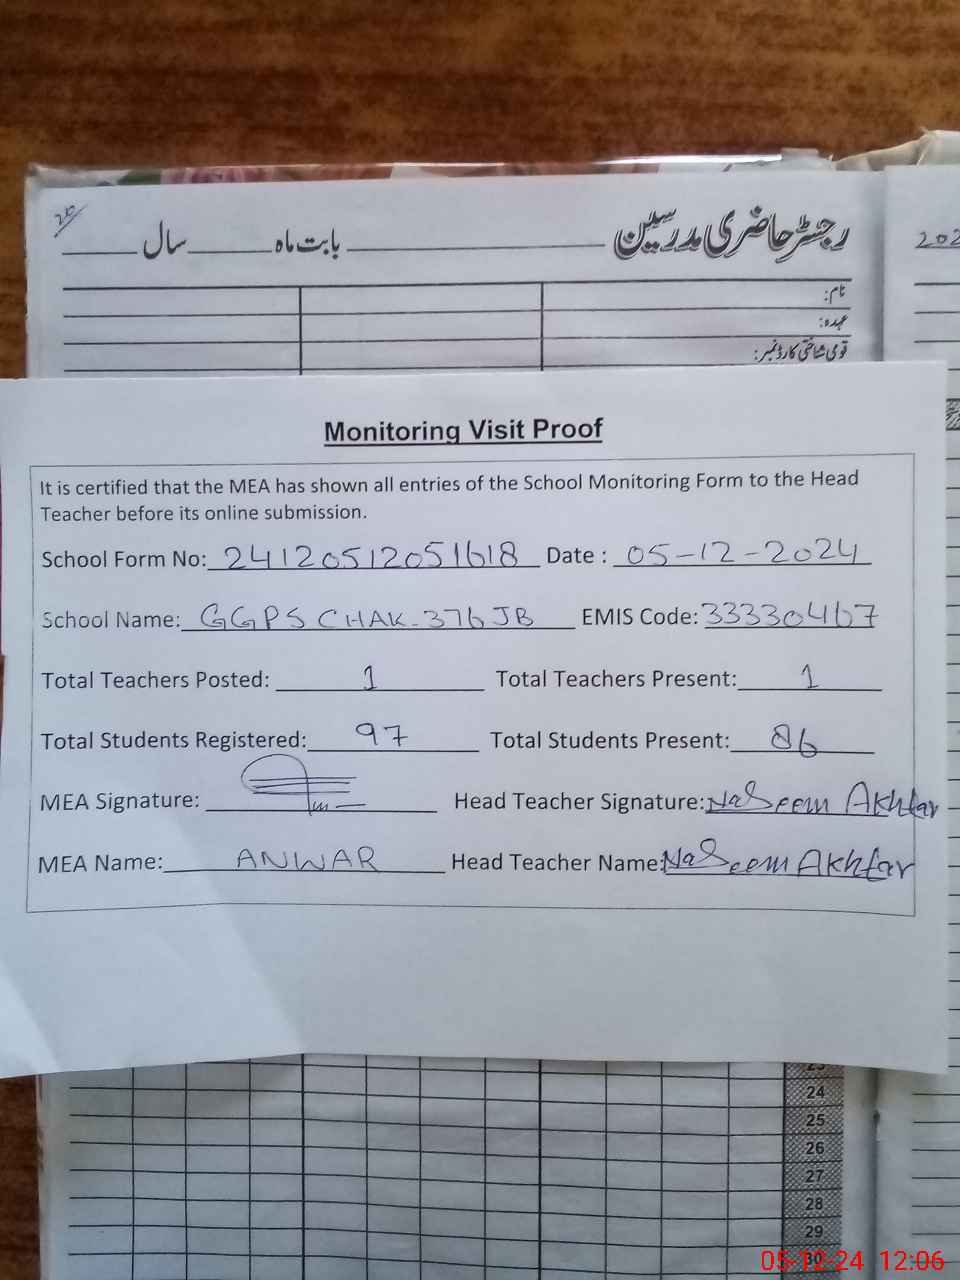 210
رجسٹر حاضری مدرسین ________ بابت ماہ ________ سال ________
202
نام:
عہدہ:
قومی شناختی کارڈ نمبر:
Monitoring Visit Proof
It is certified that the MEA has shown all entries of the School Monitoring Form to the Head
Teacher before its online submission.
School Form No: 24120512051618 Date : 05-12-2024
School Name: GGPS CHAK-376 JB EMIS Code: 33330467
Total Teachers Posted: 1 Total Teachers Present: 1
Total Students Registered: 97 Total Students Present: 86
MEA Signature: Head Teacher Signature: Naseem Akhtar
MEA Name: ANWAR Head Teacher Name: Naseem Akhtar
23
24
25
26
27
28
29
30
05-12-24 12:06